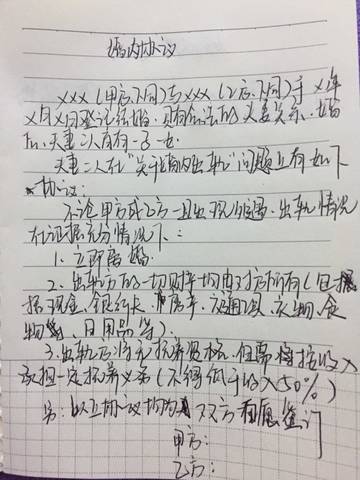 婚内协议
XXX（甲方,下同）与XXX（乙方,下同）于X年
X月X日登记结婚，具有合法的夫妻关系，婚
后，夫妻二人育有一子一女
夫妻二人在"关于婚内出轨"问题上有如下
协议：
不论甲方或乙方一旦出现外遇、出轨情况
在证据充分情况下：
1. 立即离婚
2. 出轨方的一切财产均由对方所有（包括
现金、银行卡、房产、衣物、食
物等、日用品等）.
3. 出轨方将无抚养资格，但需将按收入
承担一定抚养义务（不得低于收入50%）
另：以上协议均为双方自愿签订
甲方：
乙方：